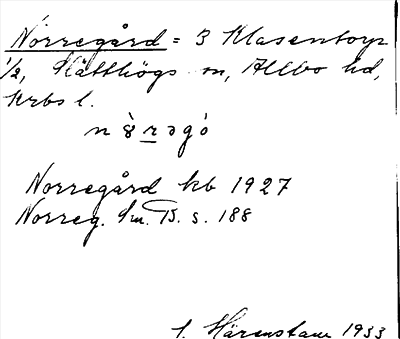 Norregård = 3 Klasentorp
1/2, Slätthögs sn, Allbo hd,
Krbs l.
Norregård kb 1927
Norreg. Sm. B. s. 188
Härenstam 1933